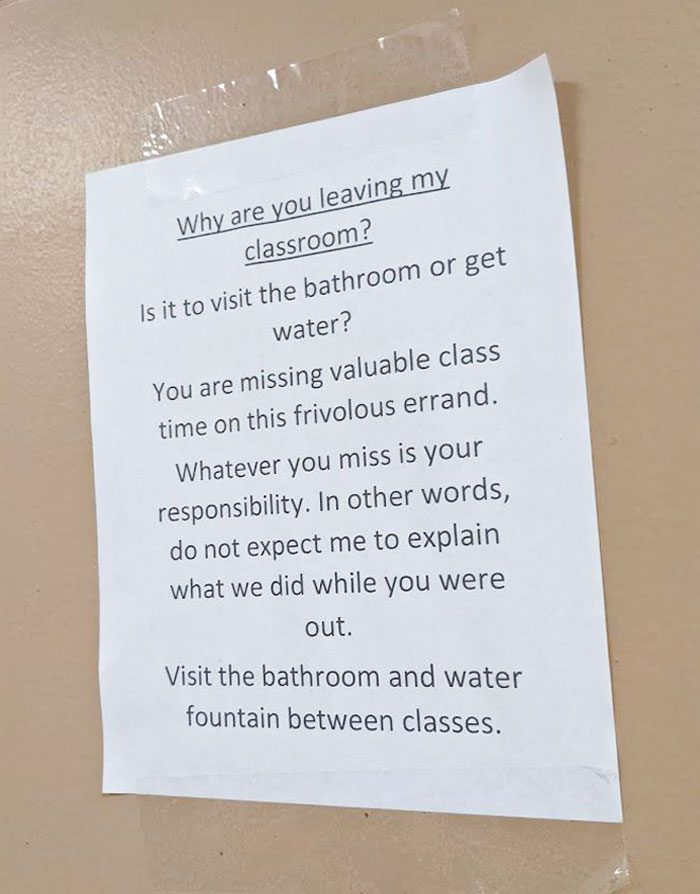 Why are you leaving my
classroom?
Is it to visit the bathroom or get
water?
You are missing valuable class
time on this frivolous errand.
Whatever you miss is your
responsibility. In other words,
do not expect me to explain
what we did while you were
out.
Visit the bathroom and water
fountain between classes.